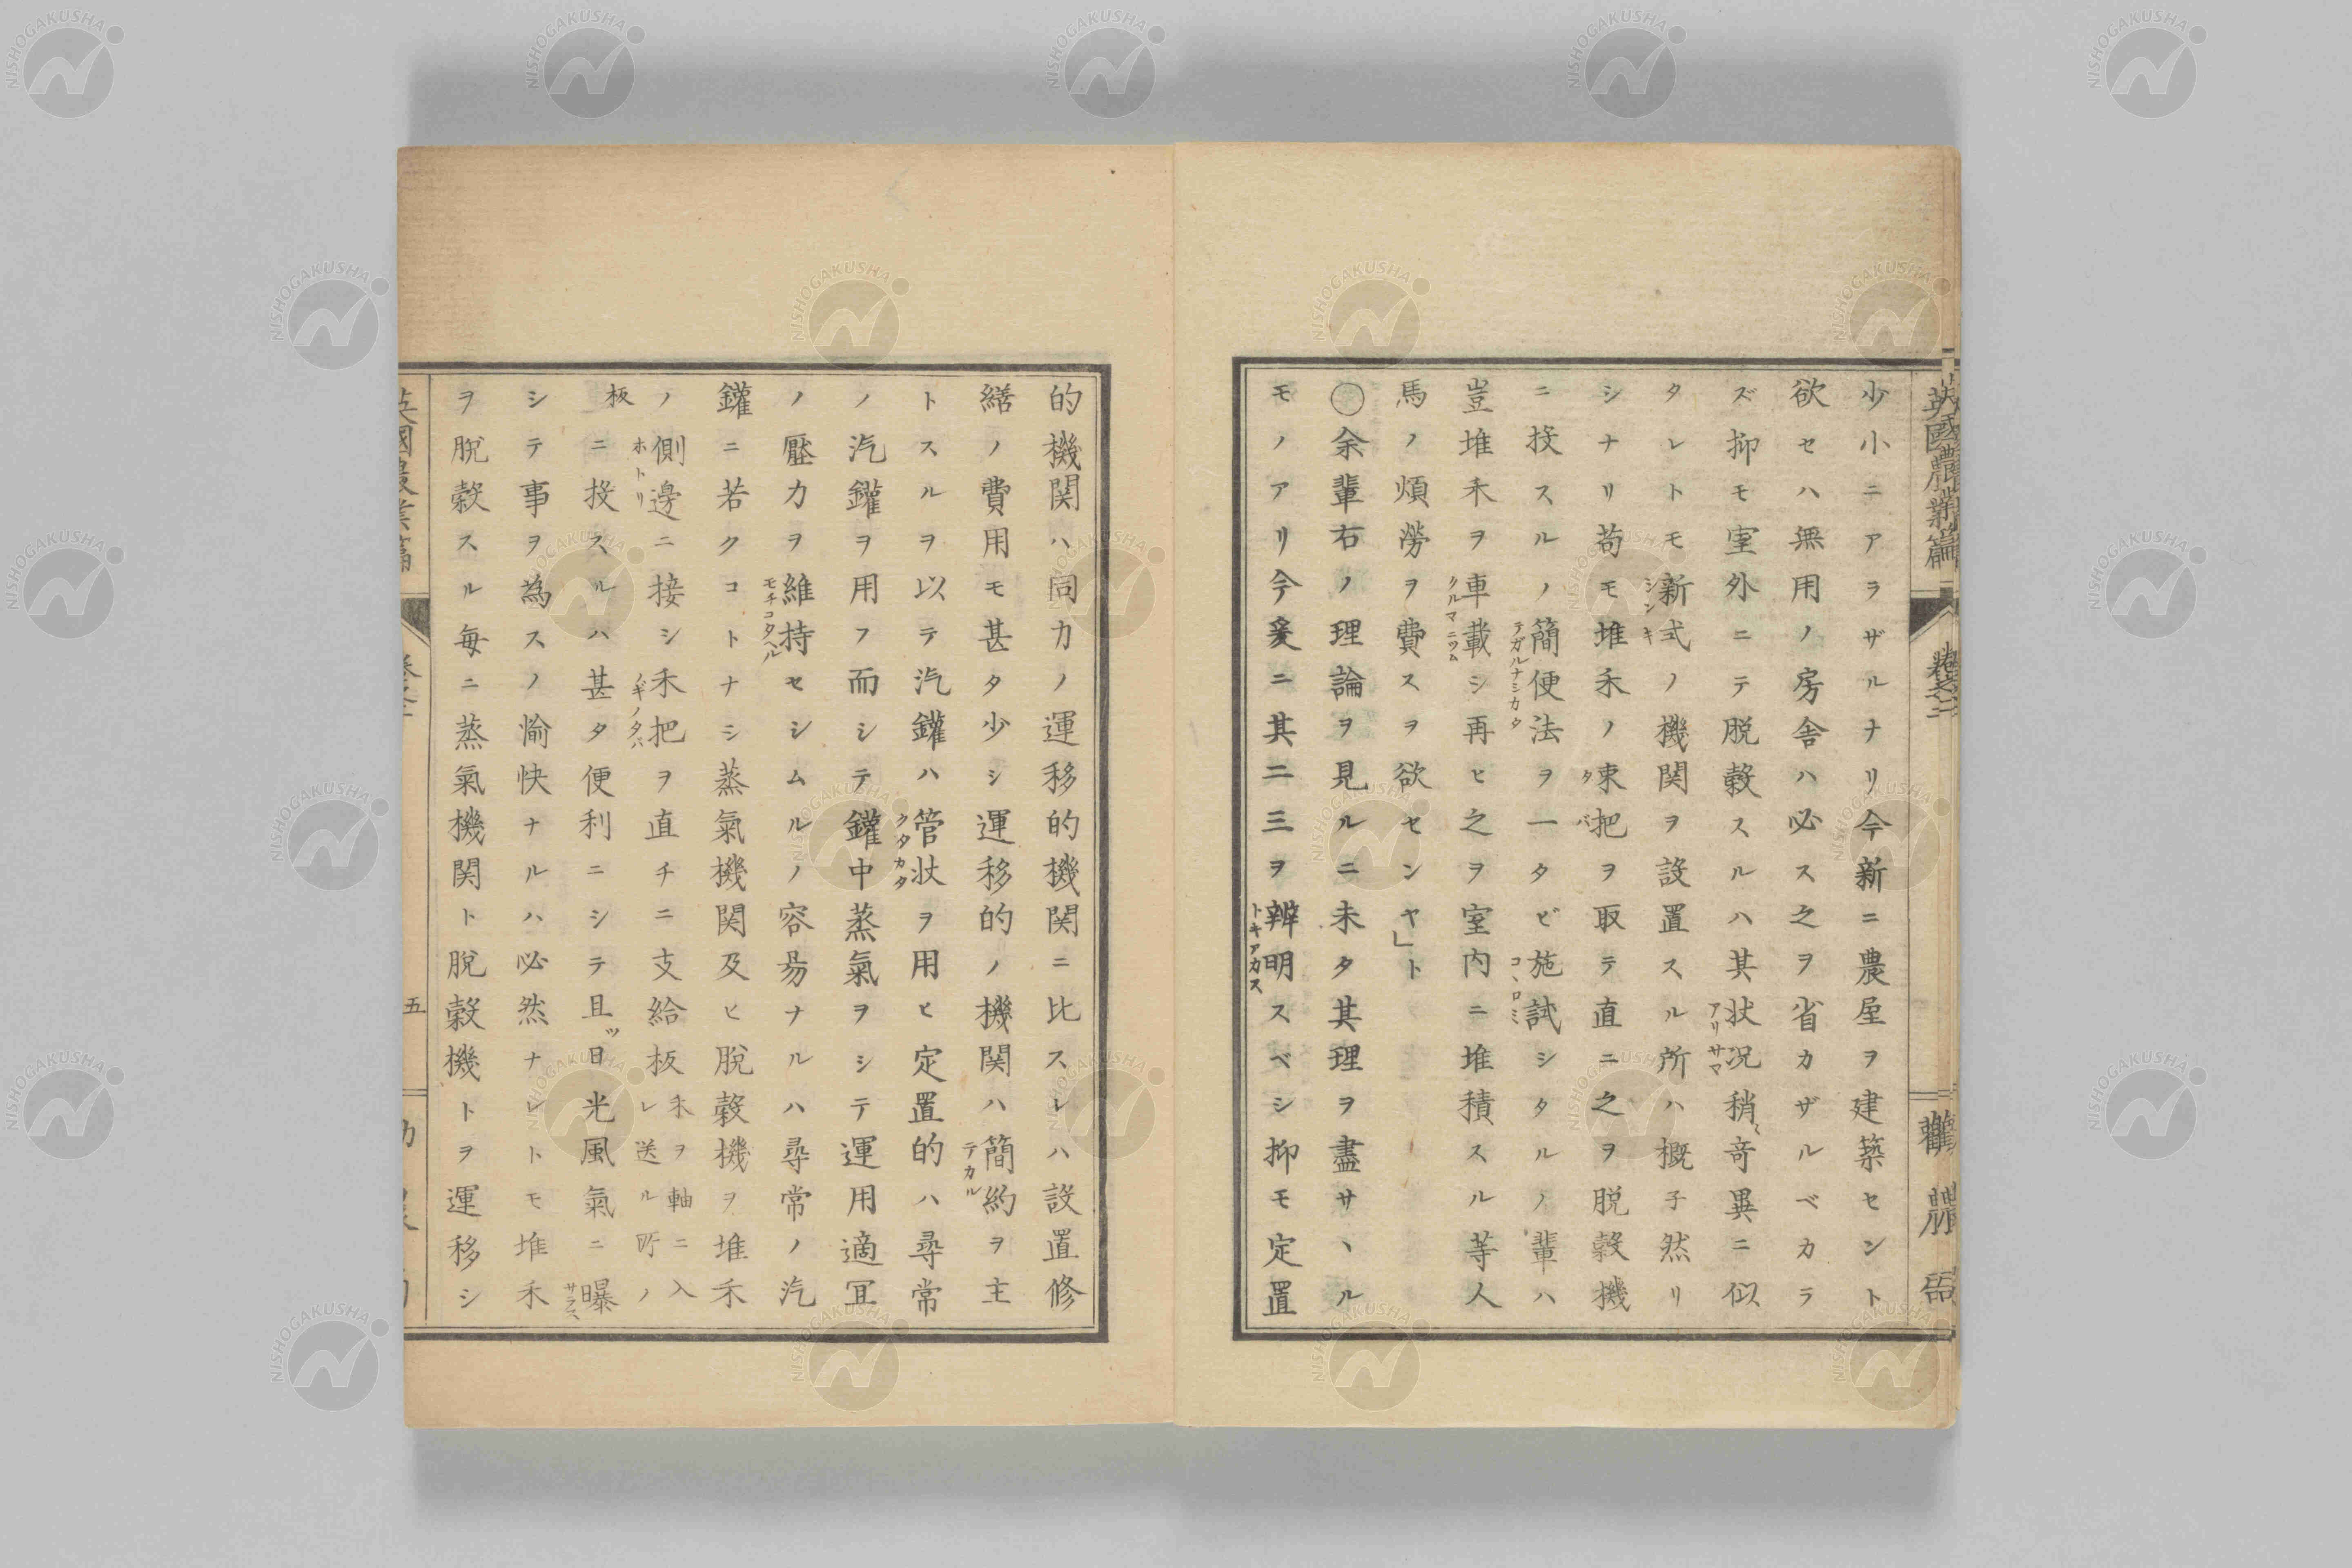 少小ニアラザルナリ今新ニ農屋ヲ建築セント
欲セハ無用ノ房舎ハ必ス之ヲ省カザルベカラ
ズ抑モ室外ニテ脱穀スルハ其状況稍〻竒異ニ似
アリサマ
タレトモ新式ノ機関ヲ設置スル所ハ概子然リ
シンキ
シナリ苟モ堆禾ノ束把ヲ取テ直ニ之ヲ脱穀機
タバ
ニ投スルノ簡便法ヲ一タビ施試シタルノ輩ハ
テガルナシカタ
コヽロミ
豈堆禾ヲ車載シ再ヒ之ヲ室内ニ堆積スル等人
クルマニツム
馬ノ煩労ヲ費スヲ欲センヤ」ト
○余輩右ノ理論ヲ見ルニ未タ其理ヲ盡サヽル
モノアリ今爰ニ其二三ヲ辨明スベシ抑モ定置
トキアカス
的機関ハ同力ノ運移的機関ニ比スレハ設置修
繕ノ費用モ甚タ少シ運移的ノ機関ハ簡約ヲ主
テカル
トスルヲ以テ汽鑵ハ管状ヲ用ヒ定置的ハ尋常
クタカタ
ノ汽鑵ヲ用フ而シテ鑵中蒸氣ヲシテ運用適冝
ノ壓力ヲ維持セシムルノ容易ナルハ尋常ノ汽
モチコタヘル
鑵ニ若クコトナシ蒸氣機関及ヒ脱穀機ヲ堆禾
ノ側邊ニ接シ禾把ヲ直チニ支給板禾ヲ軸ニ入レ送ル所ノ
ホトリ
ノギノタバ
板ニ投スルハ甚タ便利ニシテ且ツ日光風氣ニ曝
サラス
シテ事ヲ為スノ愉快ナルハ必然ナレトモ堆禾
ヲ脱穀スル毎ニ蒸氣機関ト脱穀機トヲ運移シ
五